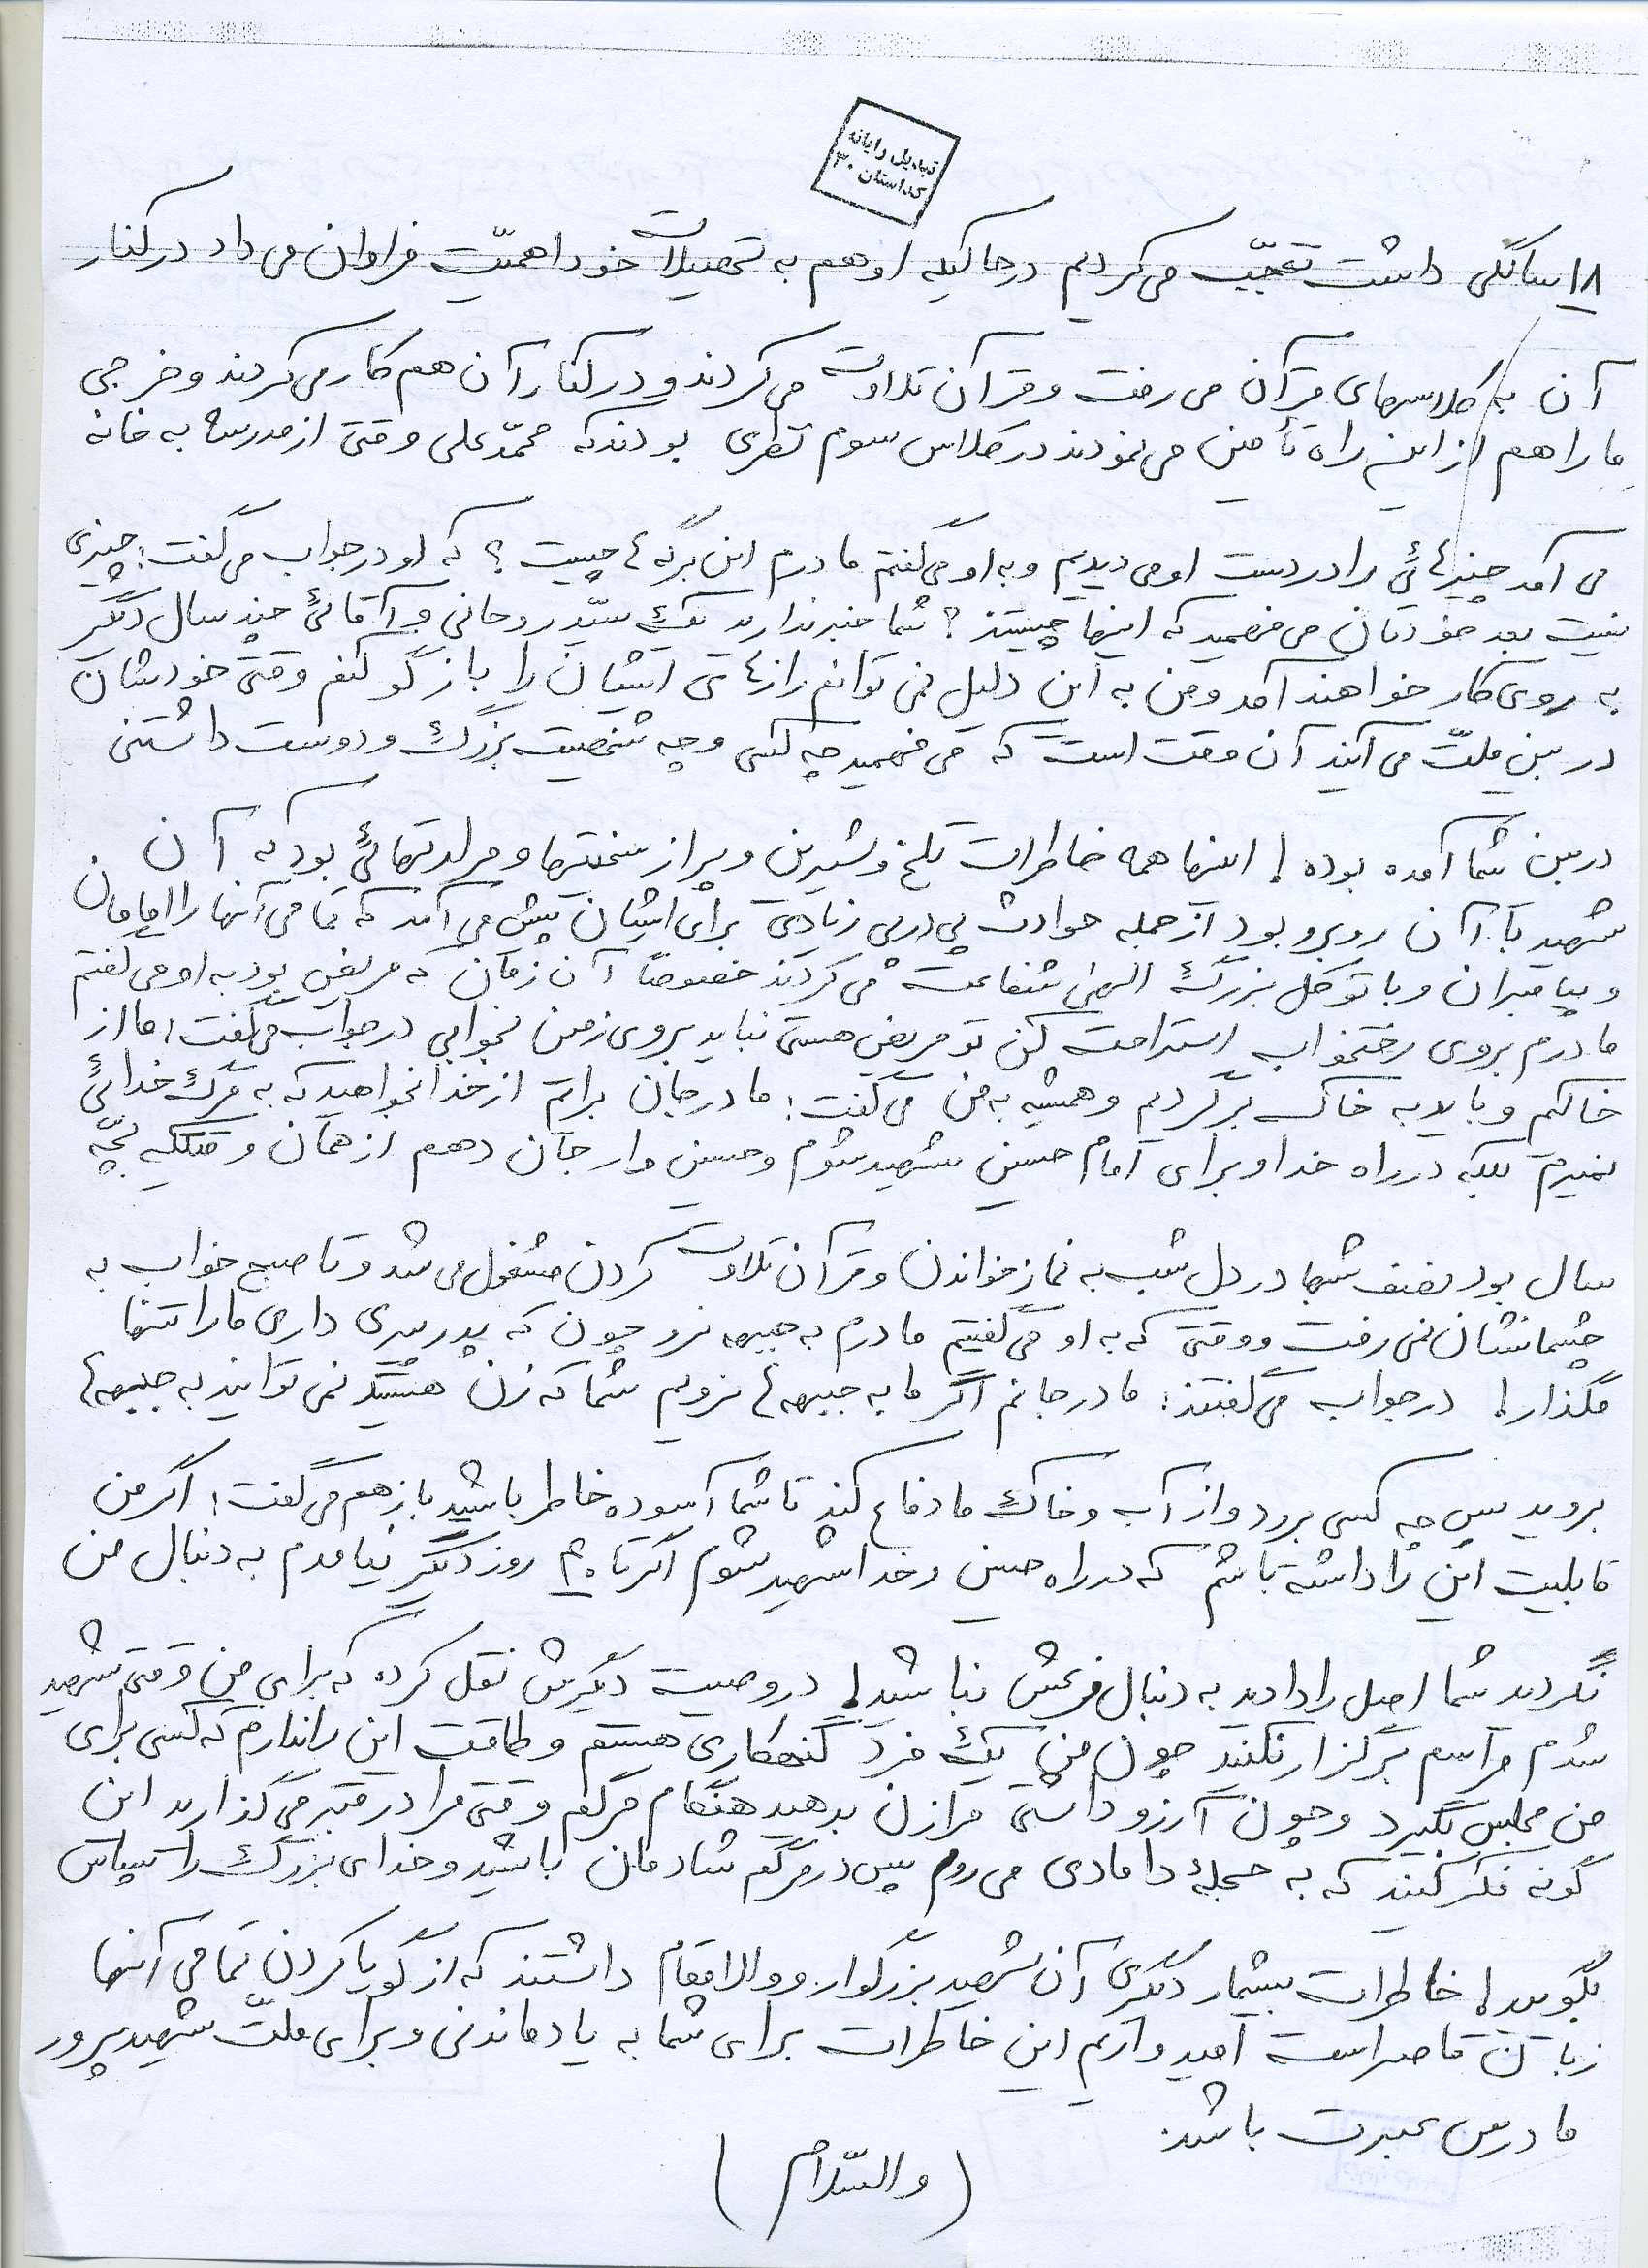 تبدیل رایانه
کداستان ۳۰
۱۸ سالگی داشت تعجّب می‌کردیم درحالیکه او هم به تحصیلات خود اهمیّت فراوان می‌داد در کنار
آن به کلاسهای قرآن می‌رفت و قرآن تلاوت می‌کردند و در کنار آن هم کار می‌کردند و خرجی
ما را هم از این راه تأمین می‌نمودند در کلاس سوم نظری بودند که محمّدعلی وقتی از مدرسه به خانه
می‌آمد چیزهائی را در دست او می‌دیدیم و به او می‌گفتم مادرم این برگه‌ها چیست؟ که او در جواب می‌گفت: چیزی
نیست بعد خودتان می‌فهمید که اینها چیستند؟ شما خبر ندارید یک سیّد روحانی و آقائی چند سال دیگر
به روی کار خواهند آمد و من به این دلیل نمی‌توانم رازهای ایشان را بازگو کنم وقتی خودشان
در بین ملّت می‌آیند آن وقت است که می‌فهمید چه کسی و چه شخصیت بزرگ و دوست داشتنی
در بین شما آمده بوده! اینها همه خاطرات تلخ و شیرین و پر از سختیها و مرارتهائی بود که آن
شهید با آن روبرو بود از جمله حوادث پی‌درپی زیادی برای ایشان پیش می‌آمد که تمامی آنها را امامان
و پیامبران و با توکل بزرگ الهی شفاعت می‌کردند خصوصاً آن زمان که مریض بود به او می‌گفتم
مادرم بروی رختخواب استراحت کن تو مریض هستی نباید بروی زمین بخوابی در جواب می‌گفت: ما از
خاکیم و باید به خاک برگردیم و همیشه به من می‌گفت: مادر جان برایم از خدا بخواهید که به مرگ خدائی
نمیرم بلکه در راه خدا و برای امام حسین شهید شوم و حسین وار جان دهم از همان وقتیکه بچّه
سال بود نصف شبها در دل شب به نماز خواندن و قرآن تلاوت کردن مشغول می‌شد و تا صبح خواب به
چشمانشان نمی‌رفت و وقتی که به او می‌گفتیم مادرم به جبهه نرو چون که پدر پیری داری ما را تنها
مگذار! در جواب می‌گفتند: مادر جانم اگر ما به جبهه‌ها نرویم شما که زن هستید نمی‌توانید به جبهه‌ها
بروید پس چه کسی برود و از آب و خاک ما دفاع کند تا شما آسوده خاطر باشید باز هم می‌گفت: اگر من
قابلیت این را داشته باشم که در راه حسین و خدا شهید شوم اگر تا روز دیگر نیامدم به دنبال من
نگردید شما اصل را دادید به دنبال فرعش نباشید! در وصیت دیگرش نقل کرده که برای من وقتی شهید
شدم مراسم برگزار نکنید چون من یک فرد گنهکاری هستم و طاقت این را ندارم که کسی برای
من مجلس بگیرد و چون آرزو داشتی مرا زن بدهید هنگام مرگم وقتی مرا در قبر می‌گذارید این
گونه فکر کنید که به حجلۀ دامادی می‌روم پس در مرگم شادمان باشید و خدای بزرگ را سپاس
بگویید! خاطرات بیشمار دیگری آن شهید بزرگوار و والامقام داشتند که از گویا کردن تمامی آنها
زبان قاصر است امیدواریم این خاطرات برای شما به یاد ماندنی و برای ملّت شهید پرور
ما درس عبرت باشد.
(والسّلام)